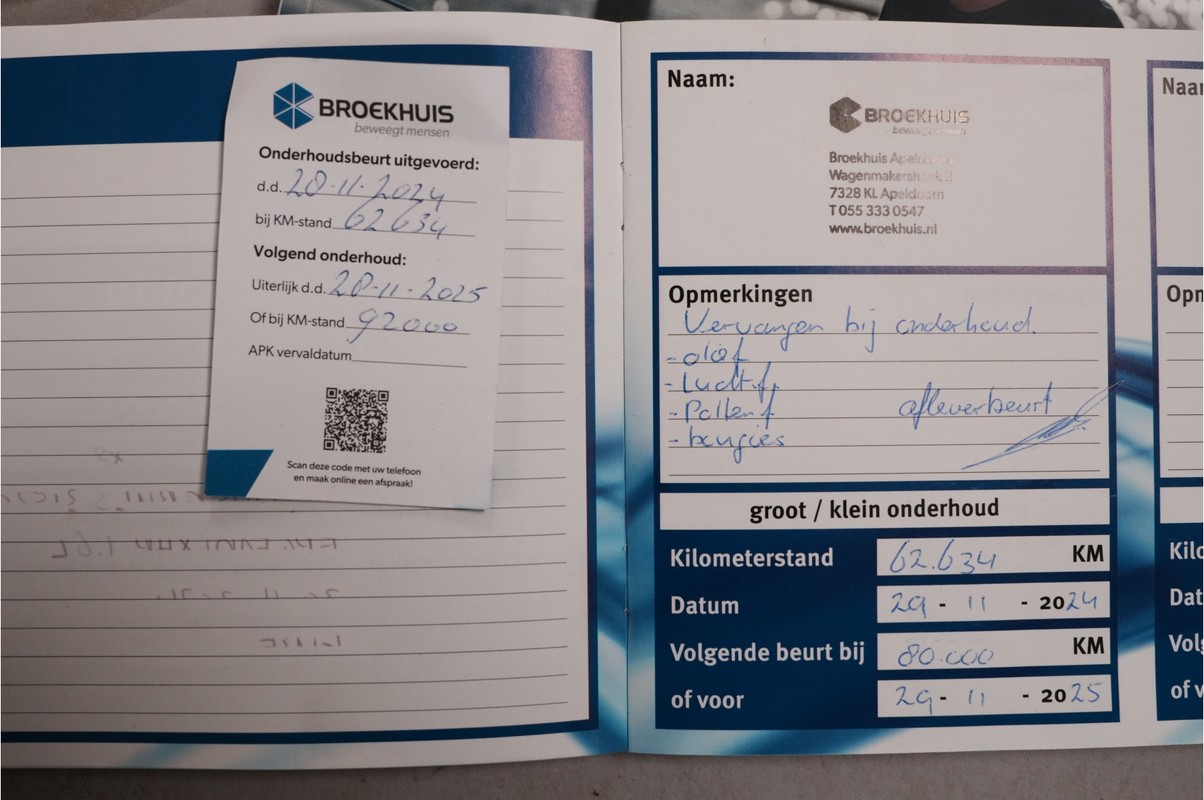 BROEKHUIS
beweegt mensen
Onderhoudsbeurt uitgevoerd:
d.d. 28-11-2024
bij KM-stand 62634
Volgend onderhoud:
Uiterlijk d.d. 28-11-2025
Of bij KM-stand 92000
APK vervaldatum
Scan deze code met uw telefoon
en maak online een afspraak!
Naam:
BROEKHUIS
beweegt mensen
Broekhuis Apeldoorn
7328 KL Apeldoorn
T 055 333 0547
www.broekhuis.nl
Opmerkingen
Vervangen bij onderhoud.
-olief
-Luchtf.
-Pollenf afleverbeurt
-bougies
groot / klein onderhoud
Kilometerstand 62.634 KM
Datum 29 - 11 - 2024
Volgende beurt bij 80.000 KM
of voor 29 - 11 - 2025
Naar
Opn
Kilo
Dat
Vol
of v